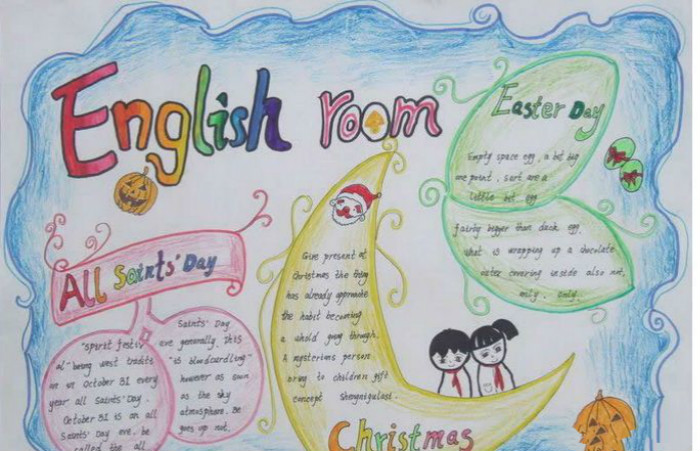 English room
Easter Day
Empty space egg, a bit big
one point, sort are a
little bit egg
fairly bigger than duck egg,
what is wrapping up a chocolate
outer covering inside also not,
only, only.
All Saints' Day
"spirit festiv
al" being west tradits
on on October 31 every
year all Saints' Day.
October 31 is an all
Saints' Day eve. be
called the all
Saints' Day
eve generally, this
"is bloodcurdling"
however as soon
as the sky
atmosphere. Be
goes up not.
Give present at
Christmas the thing
has already approximate
the habit becoming
a whold going through.
A mysterious person
bring to children gift
concept
Christmas